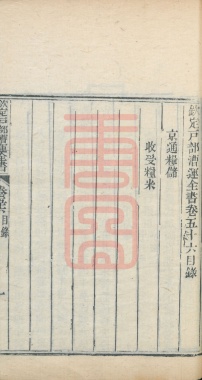 欽定戶部漕運全書卷五十六目錄
京通糧儲
收受糧米
欽定戶部漕運全書
卷五十六目錄
一